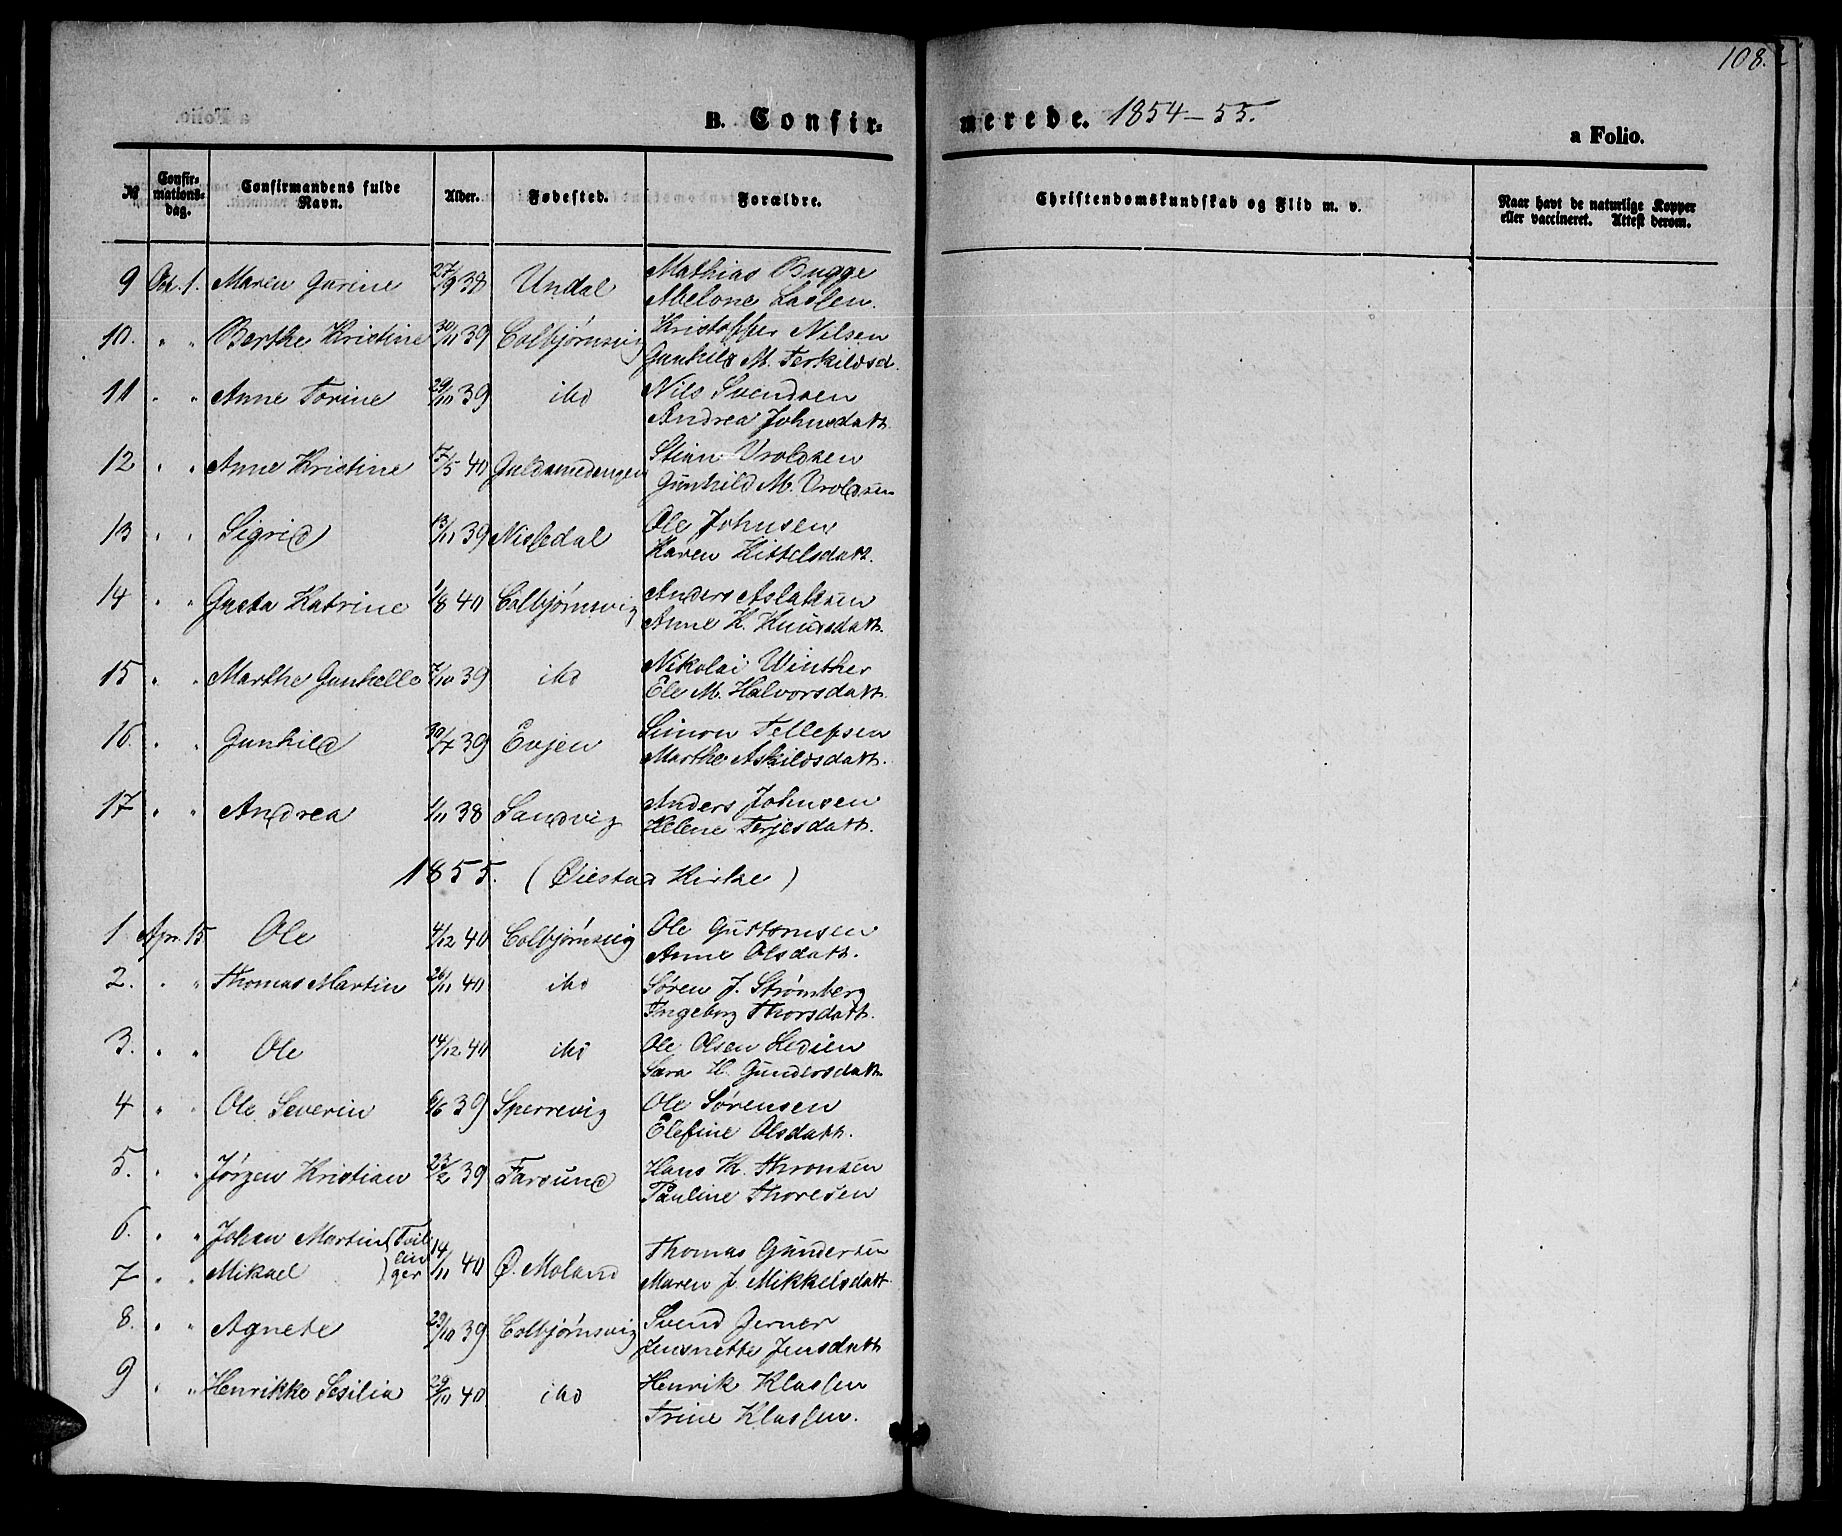 108.
B. Confirmerede. 1854-55.
a Folio.
№ Confirmationsdag. Confirmandens fulde Navn. Alder. Fødested. Forældre. Christendomskundskab og Flid m. v. Naar havt de naturlige Kopper eller vaccineret. Attest derom.
9 Oct. 1. Maren Gurine 27/9 38 Undal Mathias Bugge
Abelone Lassen.
10. " " Berthe Kristine 30/11 39 Colbjørnsvig Kristoffer Nilsen
Gunhild M. Terkildsd.
11 " " Anne Torine 29/10 39 ibd Nils Svendsen
Andrea Johnsdatt.
12 " " Anne Kristine 15/5 40 Guldsmedengen Stian Vroldsen
Gunhild M. Vroldsen
13 " " Sigrid 13/11 39 Nissedal Ole Johnsen
Karen Kittelsdatt.
14 " " Gusta Katrine 1/8 40 Colbjørnsvig Anders Aslaksen
Anne K. Knudsdatt.
15 " " Marthe Gunhelle 7/10 39 ibd Nikolai Winther
Ele M. Halvorsdatt.
16. " " Gunhild 30/7 39 Evjen Simon Tellefsen
Marthe Askildsdatt.
17 " " Andrea 1/11 38 Sandvig Anders Johnsen
Helene Terjesdatt.
1855. (Øiestad Kirke)
1 Apr. 15 Ole 4/12 40 Colbjørnsvig Ole Guttormsen
Anne Olsdatt.
2. " " Thomas Martin 26/11 40 ibd Søren J. Strømberg
Ingeborg Thorsdatt.
3. " " Ole 14/12 40 ibd Ole Olsen Ledien
Sara H. Gundersdatt.
4 " " Ole Severin 6/6 39 Sperrevig Ole Sørensen
Elefine Olsdatt.
5. " " Jørgen Kristian 23/2 39 Farsund Hans K. Thronsen
Pauline Thoresen
6. " " Johan Martin (Tvillinger) 14/11 40 Ø. Moland Thomas Gundersen
7 " " Mikael Maren J. Mikkelsdatt.
8. " " Agnete 29/10 39 Colbjørnsvig Svend Jerner
Jensnette Jensdatt
9 " " Henrikke Sesilia 29/10 40 ibd Henrik Klassen
Trine Klassen.